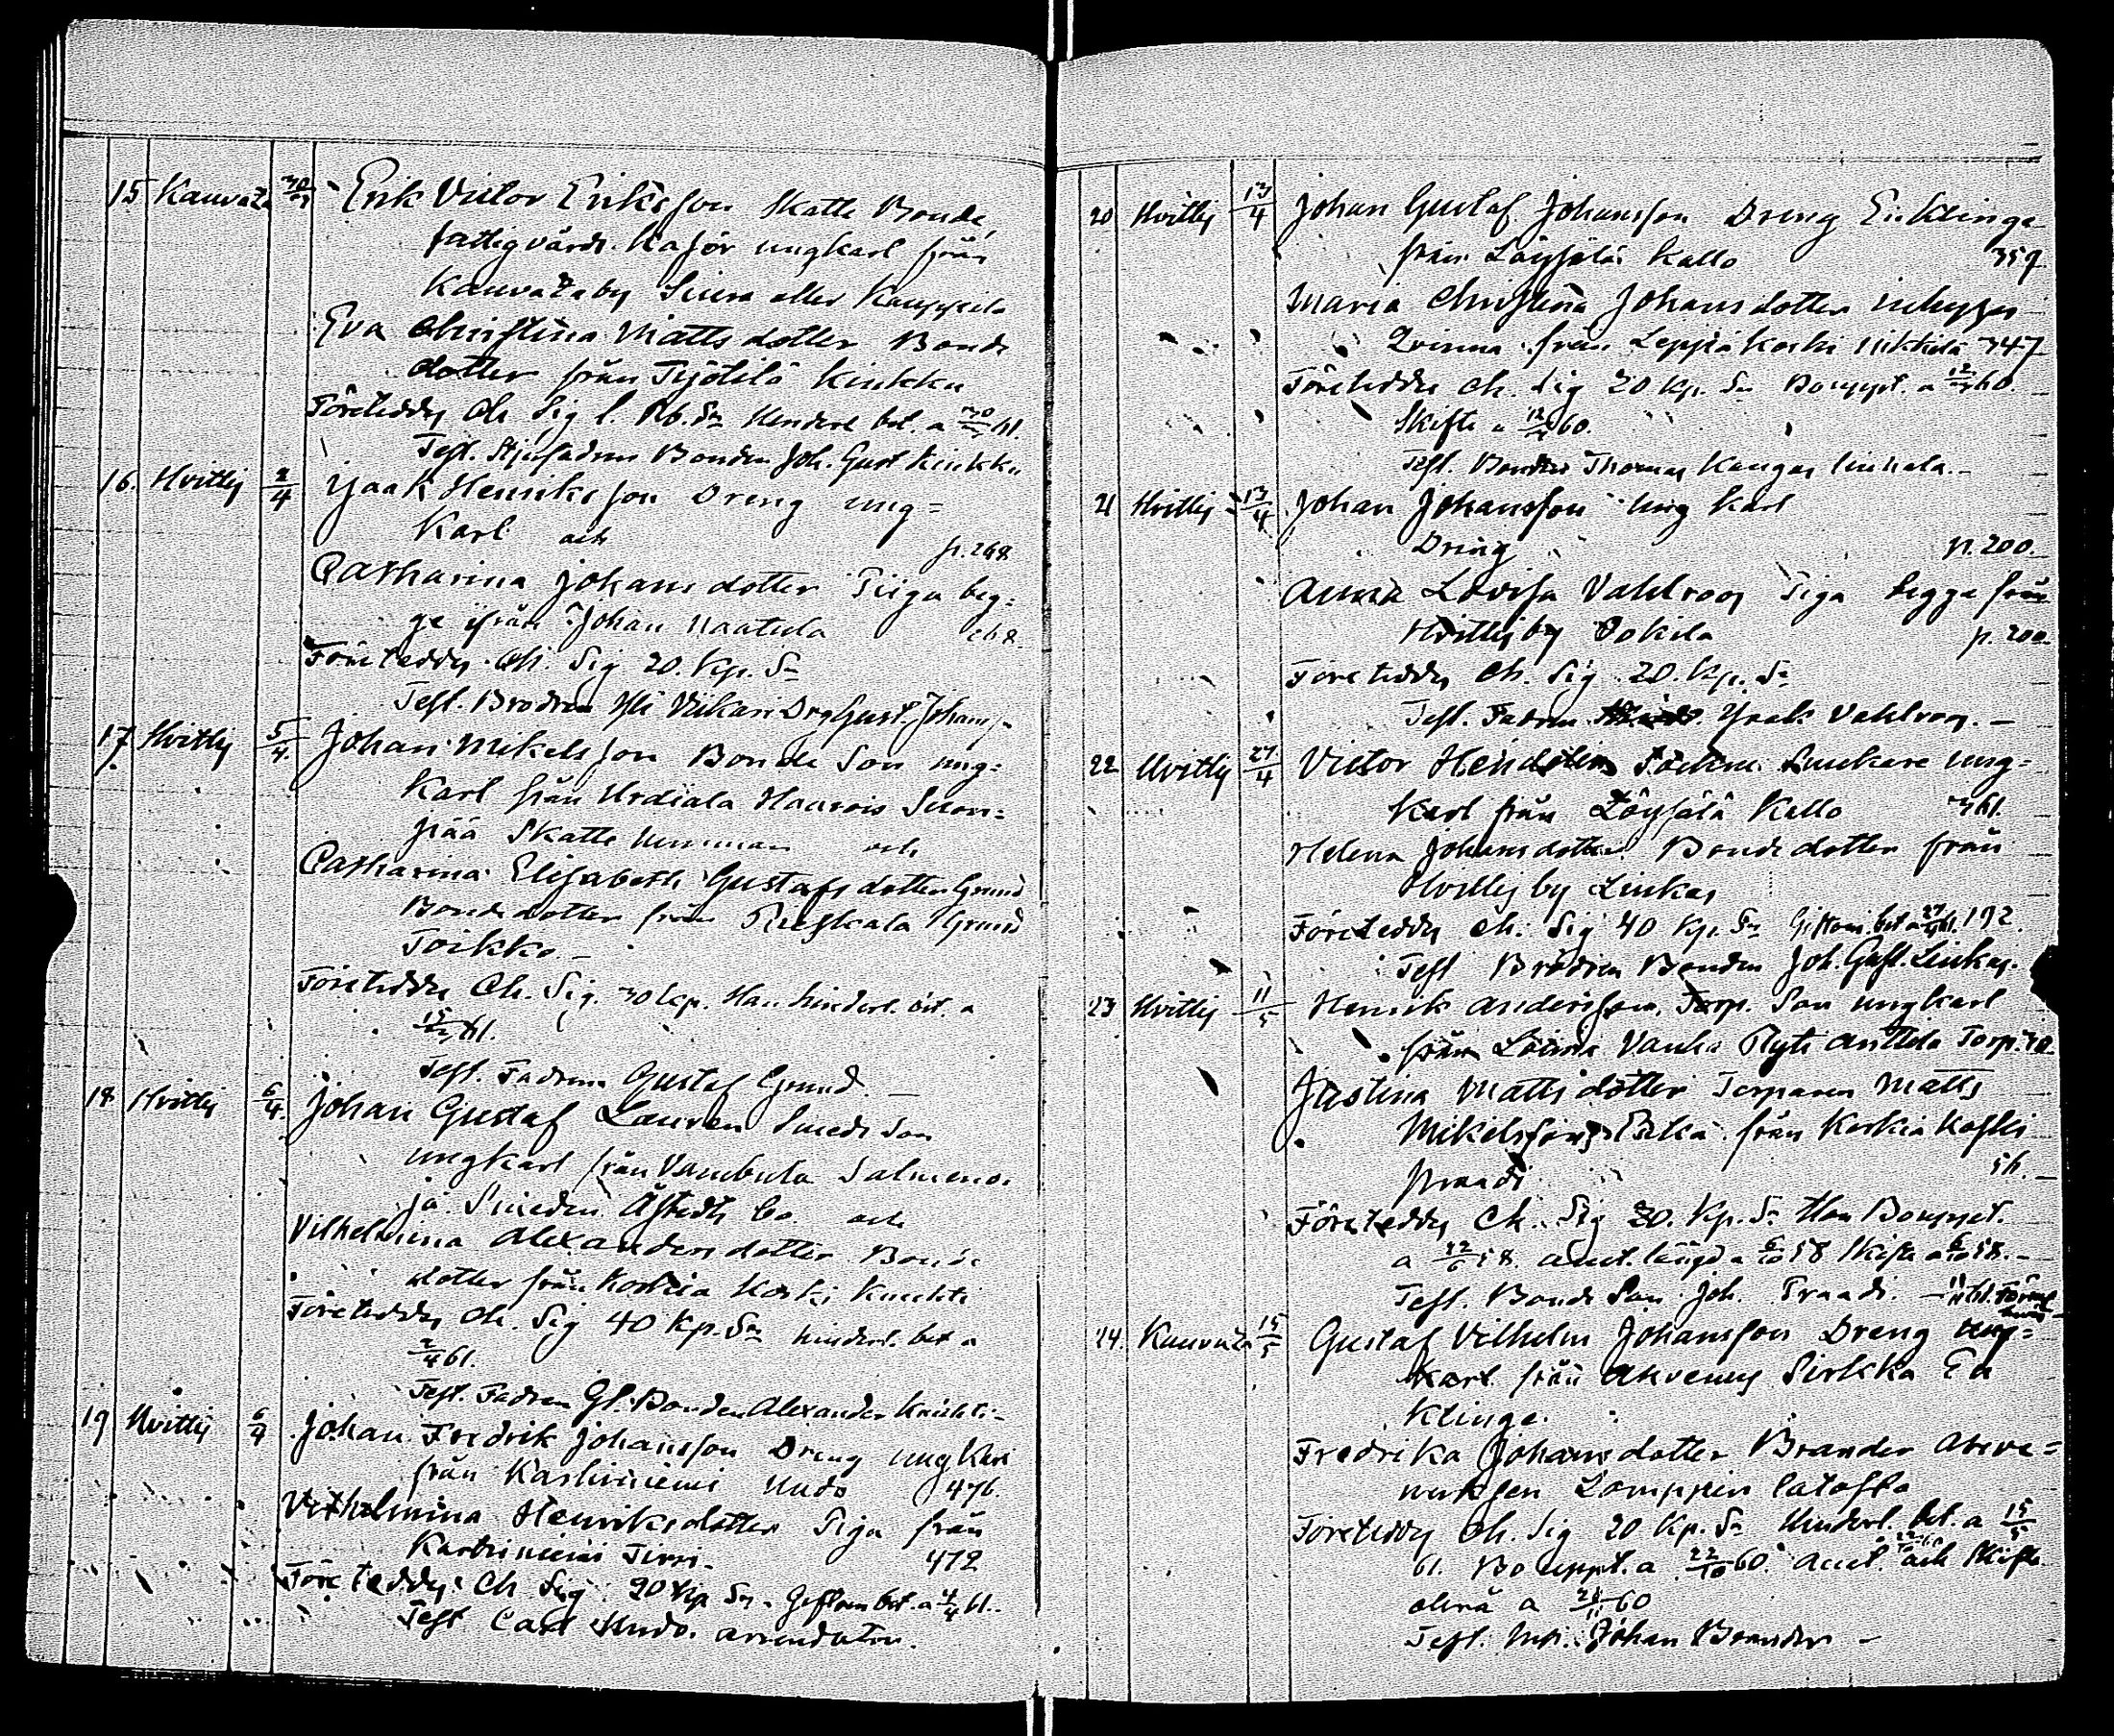 15 Kauvatz 30/3 Erik Victor Eriksson Skatte Bonde
fattigvårds. Kassör ungkarl från
Kauvatzaby Siura eller Kauppila
Eva Christina Matts dotter Bonde
dotter från Kinkku
Företeddes Ch. Sig 1. Rb. Sr Henderl bet. a 30/3 61.
Test. Stjuffadren Bonden Joh. Gust Kinkku
16. Hvittis 2/4 Isaak Henriksson Dreng ung=
Karl och p. 268
Catharina Johans dotter Piiga beg=
ge ifrån Johan Naatula 268.
Företeddes Ch. Sig 20. Kp. Sr
Test. Brodren Yli Viikari Drg Gust. Johans.
17. Hvittis 5/4. Johan Mikelsson Bonde Son ung=
Karl från Urdiala Haavois Suon=
pää Skatte och
Catharina Elisabeth Gustafs dotter Grund
Bonde dotter från Grund
Toikko –
Företeddes Ch. Sig. 30 kp. Hans hinderl. bet. a
61.
Test. Fadren Gustaf Grund. –
18 Hvittis 6/4. Johan Gustaf Lauren Smeds Son
ungkarl från Vambula Salmeno=
ja Smeden och
Vilhelmina Alexanders dotter Bonde
dotter från Koskia Koski Knichti
Företeddes Ch. Sig 40 Kp. Sr hinderl. bet a
2/4 61.
Test. Fadren Gl. Bonden Alexander Knichti –
19 Hvittis 6/4 Johan Fredrik Johansson Dreng ung Karl
från Karhiniemi Uudo 476.
Vilhelmina Henriksdotter Piga från
Karhiniemi Tirri. 472
Företeddes Ch Sig 20 kp Sr. Giftom bet. a 4/4 61.
Test Carl Uudo. arrendator.
20 Hvittis 13/4 Johan Gustaf Johansson Dreng Enklinge
från Löysälä Kallo 359
Maria Christina Johans dotter inhyses
Qvinna från Leppäkoski 347
Företeddes Ch. Sig 20 Kp. Sr Bouppt. a 60.
Skifte a 60.
Test. Bonden Thomas Kangas –
21 Hvittis 13/4 Johan Johansson Ung Karl
Dring p. 200.
Anna Lovisa Vahlroos Piga begge från
Hvittisby Sokila p. 200.
Företeddes Ch. Sig 20. Kp. Sr
Test. Fadren Isak Vahlroos. –
22 Hvittis 27/4 Victor Hendelin Sockne Snickare ung=
Karl från Löysälä Kallo 361.
Helena Johans dotter Bonde dotter från
Hvittis by Linkas
Företeddes Ch. Sig 40 Kp. Sr Giftom. bet a 27/4 61. 192.
Test Brodren Bonden Joh. Gust. Linkas.
23 Hvittis 11/5 Henrik Andersson Torp. Son ungkarl
från Loima Vanha Anttila Torp.
Justina Matts dotter Torparen Matts
Mikelssons Enka från Koskia Koski
Praadi 56. –
Företeddes Ch. Sig 20. Kp. Sr Hon Bouppt.
a 58. auct. längd a 6/10 58 Skifte a 6/10 58. –
Test. Bonde Son Joh. Praadi. –
24. Kauvatz 15/5 Gustaf Vilhelm Johansson Dreng ung=
Karl från Ahvenus Sirkka En
Klinge.
Fredrika Johans dotter Brander Ahve=
nuksen
Företeddes Ch. Sig 20 Kp. Sr Hinderl. bet. a 15/5
61. Bouppt. a 22/10 60. Auct. och Skifte
60
Test. Johan Brander –